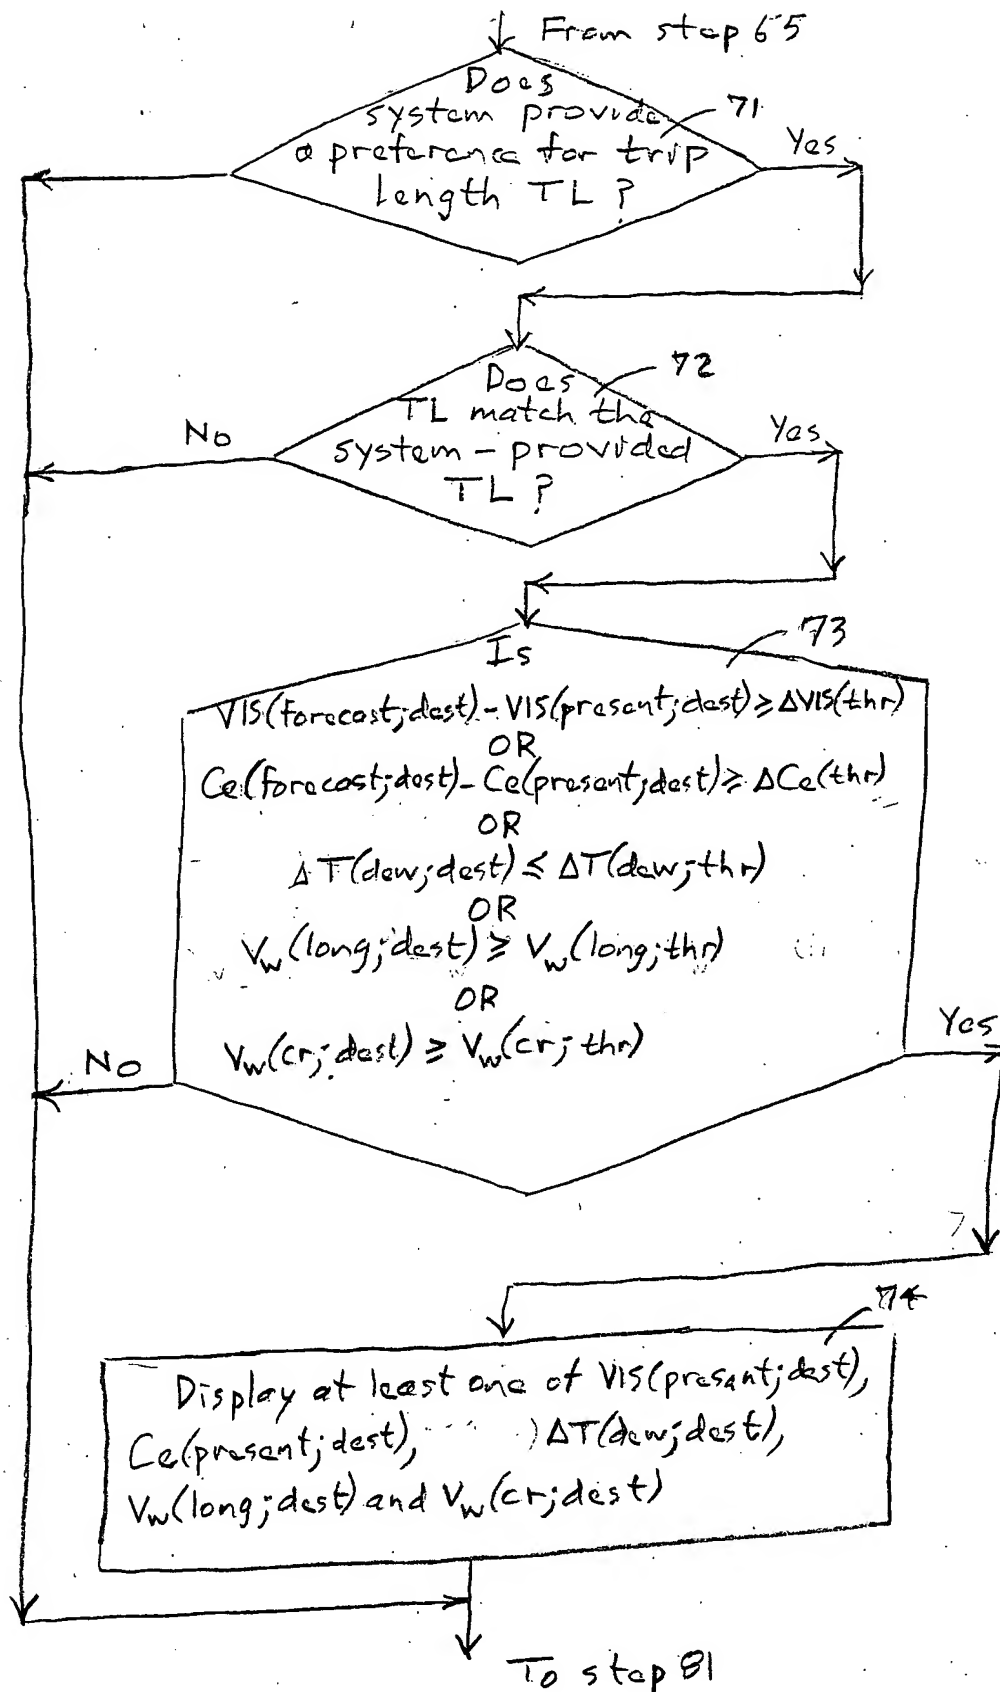 From step 65
Does
system provide
a preference for trip
length TL ?
71
Yes
Does
TL match the
system - provided
TL ?
72
No
Yes
Is
73
VIS(forecast;dest) - VIS(present;dest) ≥ ΔVIS(thr)
OR
Ce(forecast;dest) - Ce(present;dest) ≥ ΔCe(thr)
OR
ΔT(dew;dest) ≤ ΔT(dew;thr)
OR
Vw(long;dest) ≥ Vw(long;thr)
OR
Vw(cr;dest) ≥ Vw(cr;thr)
No
Yes
74
Display at least one of VIS(present;dest),
Ce(present;dest), ΔT(dew;dest),
Vw(long;dest) and Vw(cr;dest)
To step 81